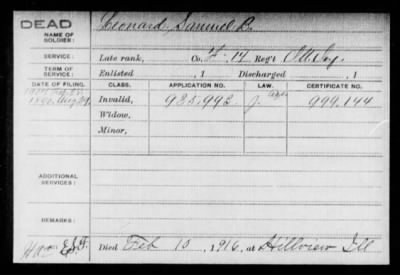 DEAD
NAME OF SOLDIER: Leonard Samuel B.
SERVICE: Late rank, Co. F. 14 Reg't Ill Inf.
TERM OF SERVICE: Enlisted , 1 Discharged , 1
DATE OF FILING. CLASS. APPLICATION NO. LAW. CERTIFICATE NO.
1890 Aug Invalid, 935.993 J. 999.144
Widow,
Minor,
ADDITIONAL SERVICES:
REMARKS:
Died Feb 10, 1916, at Hillview Ill